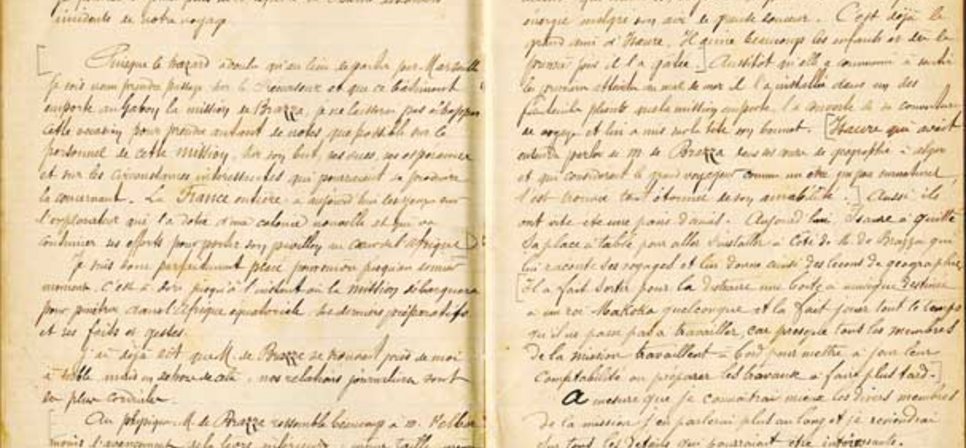 incidents de notre voyage
[Puisque le hazard a voulu qu'au lieu de partir par Marseille
je sois venu prendre passage sur le et que ce bâtiment
emporte au Gabon la mission de Brazza, je ne laisserai pas échapper
cette occasion pour prendre autant de notes que possible sur le
personnel de cette mission, sur son but, ses vues, ses espérances
et sur les circonstances intéressantes qui pourraient se produire
la concernant. La France entière a aujourd'hui les yeux sur
l'explorateur qui l'a dotée d'une colonie nouvelle et qui va
continuer ses efforts pour porter son pavillon au cœur de l'Afrique]
Je suis donc parfaitement placé pour suivre jusqu'au
moment, c'est à dire jusqu'à l'instant où la mission débarquera
pour pénétrer dans l'Afrique équatoriale, les derniers préparatifs
et ses faits et gestes.
J'ai déjà dit que M. de Brazza se trouvait près de moi
à table, nos relations journalières sont
des plus cordiales.
[Au physique M. de Brazza ressemble beaucoup à M.
moins taille
énergie malgré son air de grande douceur. C'est déjà le
grand ami d'Isaure. Il aime beaucoup les enfants et
pour elle il l'a gâtée.] Aussitôt qu'elle a commencé à sentir
les premières atteintes du mal de mer il l'a installée dans un des
fauteuils pliants que la mission emporte, l'a couverte de sa couverture
de voyage et lui a mis sur la tête son bonnet. [Isaure qui avait
entendu parler de M. de Brazza dans ses cours de géographie à Alger
et qui considérait le grand voyageur comme un être quasi surnaturel,
s'est trouvée tout étonnée de son amabilité.] Aussi ils
ont vite été une paire d'amis. Aujourd'hui Isaure a quitté
sa place à table pour aller s'installer à côté de M. de Brazza qui
lui raconte ses voyages et lui donne aussi des leçons de géographie.
[Il a fait sortir pour la distraire une boîte à musique destinée
à un roi Makoko quelconque et la fait jouer tout le temps
qu'il ne passe pas à travailler, car presque tous les membres
de la mission travaillent à bord pour mettre à jour leur
comptabilité ou préparer les travaux à faire plus tard.]
A mesure que je connaîtrai mieux les divers membres
de la mission j'en parlerai plus au long et je reviendrai
sur tous les détails qui pourraient être intéressants.